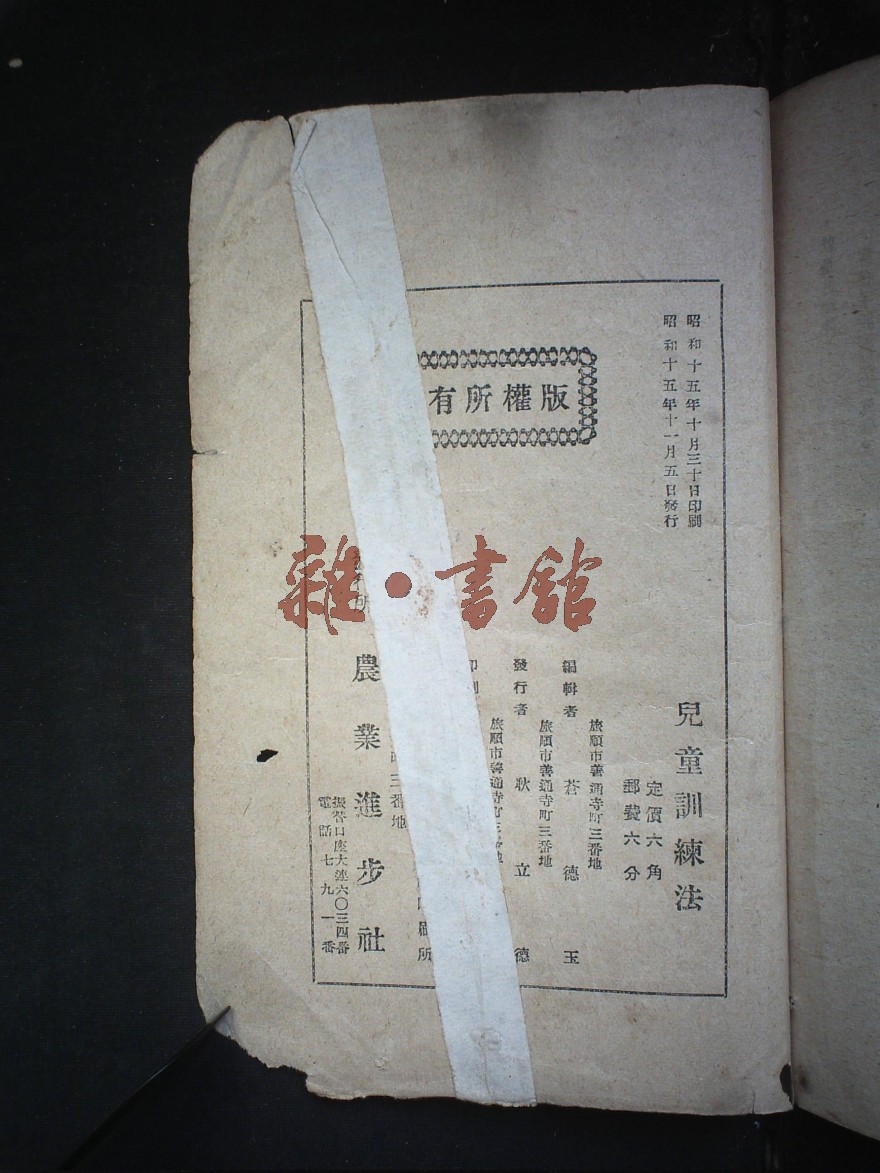 昭和十五年十月三十日印刷
昭和十五年十一月五日發行
版權所有
兒童訓練法
定價六角
郵費六分
旅順市善通寺町三番地
編輯者 蒼德玉
旅順市善通寺町三番地
發行者 耿立德
旅順市善通寺町三番地
印刷
三番地
刷所
農業進步社
振替口座大連六〇三四番
電話七九一番
雜·書館